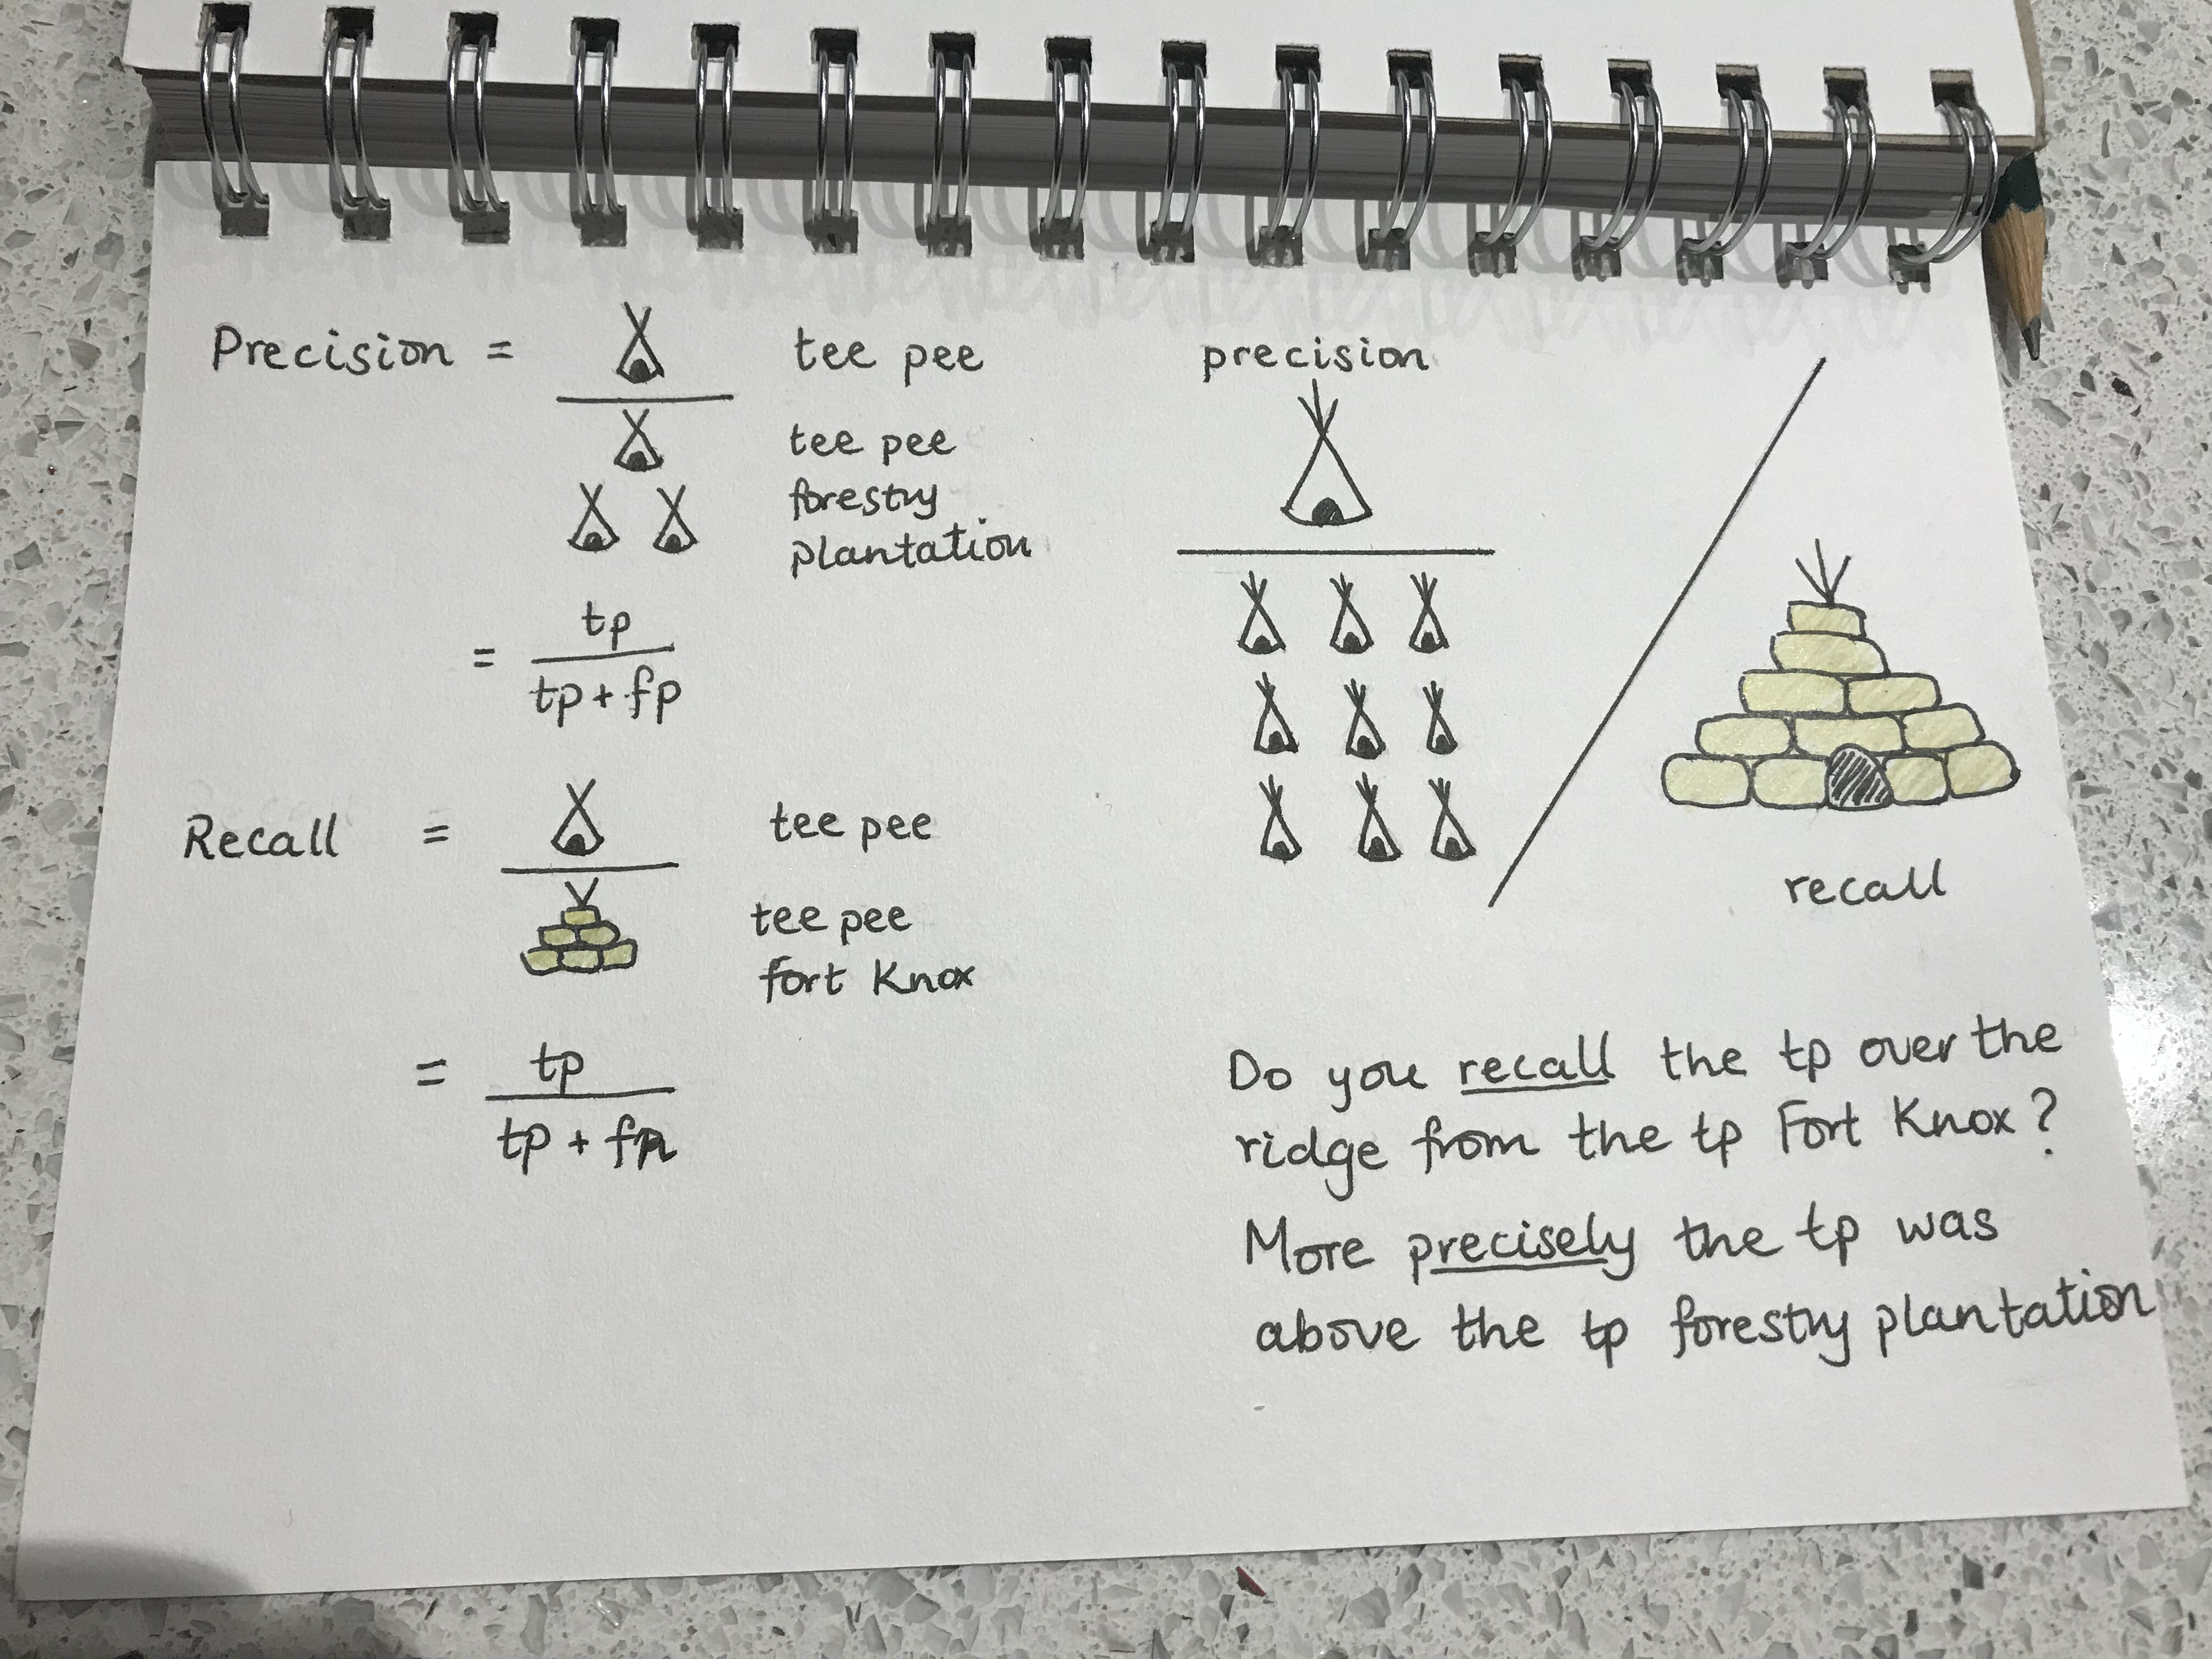 Precision = tee pee
tee pee
forestry
plantation
= tp
tp + fp
Recall = tee pee
tee pee
fort Knox
= tp
tp + fn
precision
recall
Do you recall the tp over the
ridge from the tp Fort Knox?
More precisely the tp was
above the tp forestry plantation